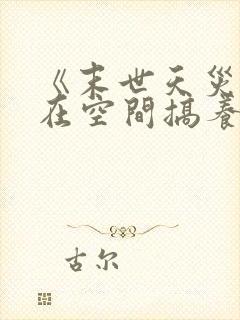 《末世天災
在空間搞養
古尔